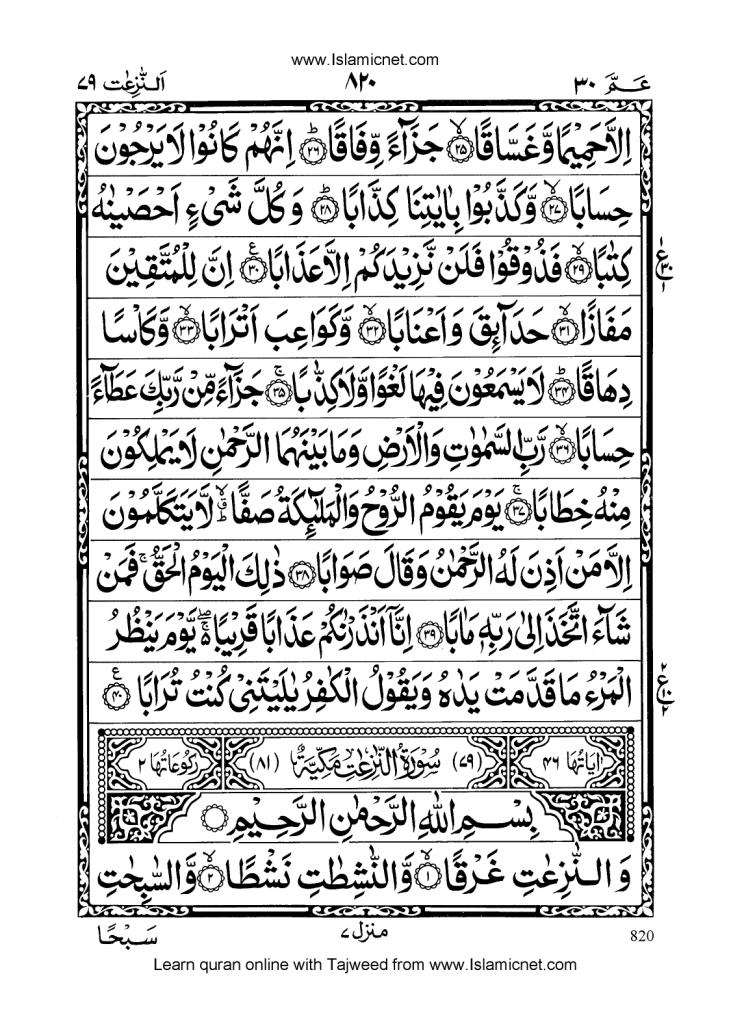 www.Islamicnet.com
عَـمَّ ٣٠
٨٢٠
اَلنّٰزِعٰت ٧٩
اِلَّا حَمِيْمًا وَّغَسَّاقًا ۙ﴿٢٥﴾ جَزَآءً وِّفَاقًا ؕ﴿٢٦﴾ اِنَّهُمْ كَانُوْا لَا يَرْجُوْنَ
حِسَابًا ۙ﴿٢٧﴾ وَّكَذَّبُوْا بِاٰيٰتِنَا كِذَّابًا ؕ﴿٢٨﴾ وَكُلَّ شَىْءٍ اَحْصَيْنٰهُ
كِتٰبًا ۙ﴿٢٩﴾ فَذُوْقُوْا فَلَنْ نَّزِيْدَكُمْ اِلَّا عَذَابًا ﴿٣٠﴾ع اِنَّ لِلْمُتَّقِيْنَ
ع ٣٠ ١
مَفَازًا ۙ﴿٣١﴾ حَدَآئِقَ وَاَعْنَابًا ۙ﴿٣٢﴾ وَّكَوَاعِبَ اَتْرَابًا ۙ﴿٣٣﴾ وَّكَاْسًا
دِهَاقًا ؕ﴿٣٤﴾ لَا يَسْمَعُوْنَ فِيْهَا لَغْوًا وَّلَا كِذّٰبًا ۚ﴿٣٥﴾ جَزَآءً مِّنْ رَّبِّكَ عَطَآءً
حِسَابًا ۙ﴿٣٦﴾ رَّبِّ السَّمٰوٰتِ وَالْاَرْضِ وَمَا بَيْنَهُمَا الرَّحْمٰنِ لَا يَمْلِكُوْنَ
مِنْهُ خِطَابًا ۚ﴿٣٧﴾ يَوْمَ يَقُوْمُ الرُّوْحُ وَالْمَلٰٓئِكَةُ صَفًّا ۙؕ لَّا يَتَكَلَّمُوْنَ
اِلَّا مَنْ اَذِنَ لَهُ الرَّحْمٰنُ وَقَالَ صَوَابًا ﴿٣٨﴾ ذٰلِكَ الْيَوْمُ الْحَقُّ ۚ فَمَنْ
شَآءَ اتَّخَذَ اِلٰى رَبِّهٖ مَاٰبًا ﴿٣٩﴾ اِنَّاۤ اَنْذَرْنٰكُمْ عَذَابًا قَرِيْبًا ۖۚ يَّوْمَ يَنْظُرُ
الْمَرْءُ مَا قَدَّمَتْ يَدٰهُ وَيَقُوْلُ الْكٰفِرُ يٰلَيْتَنِىْ كُنْتُ تُرٰبًا ﴿٤٠﴾ع
٢ ع ١٠ ٢
اٰيَاتُهَا ٤٦
(٧٩) سُوْرَةُ النّٰزِعٰتِ مَكِّيَّةٌ (٨١)
رُكُوْعَاتُهَا ٢
بِسْمِ اللّٰهِ الرَّحْمٰنِ الرَّحِيْمِ ○
وَالنّٰزِعٰتِ غَرْقًا ۙ﴿١﴾ وَّالنّٰشِطٰتِ نَشْطًا ۙ﴿٢﴾ وَّالسّٰبِحٰتِ
سَبْحًا
منزل ٧
820
Learn quran online with Tajweed from www.Islamicnet.com